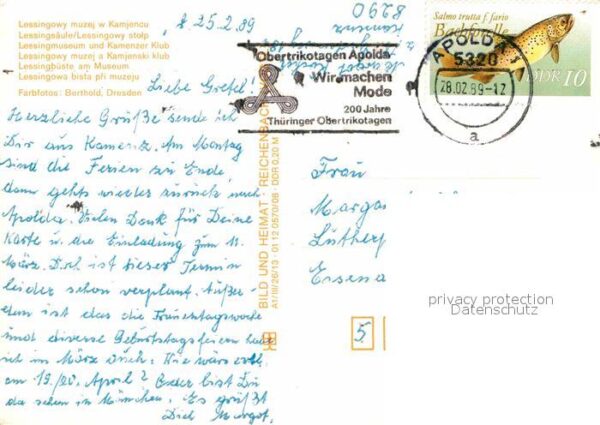 Lessingowy muzej w Kamjencu
Lessingsäule/Lessingowy stołp
Lessingmuseum und Kamenzer Klub
Lessingowy muzej a Kamjenski klub
Lessingbüste am Museum
Lessingowa bista při muzeju
Farbfotos: Berthold, Dresden
25.2.89
Liebe Gretel!
Herzliche Grüße sende ich
Dir aus Kamenz. Am Montag
sind die Ferien zu Ende,
dann gehts wieder zurück nach
Apolda. Vielen Dank für Deine
Karte u. die Einladung zum 11.
März. Doch ist dieser Termin
leider schon verplant. Außer-
dem ist das die Frauentagswoche
und diverse Geburtstagsfeiern habe
ich im März auch. Wie wärs
am 19./20. April? Oder bist Du
da schon in München. Es grüßt
Dich Margot.
BILD UND HEIMAT REICHENBACH
A1/III/26/13 01 12 0570/08 DDR 0,20 M
8290
Kamenz
Obertrikotagen Apolda
Wir machen
Mode
200 Jahre
Thüringer Obertrikotagen
APOLDA
5320
28.02.89-12
a
Salmo trutta f. fario
Bachforelle
DDR 10
Frau
Margar
Lutherp
Eisena
5
privacy protection
Datenschutz